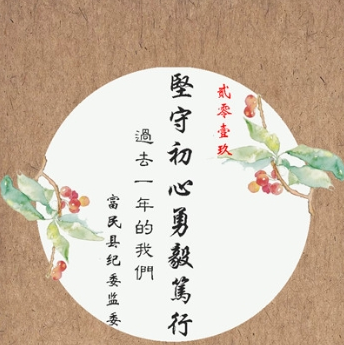 贰零壹玖
堅守初心勇毅篤行
過去一年的我們
富民县纪委监委